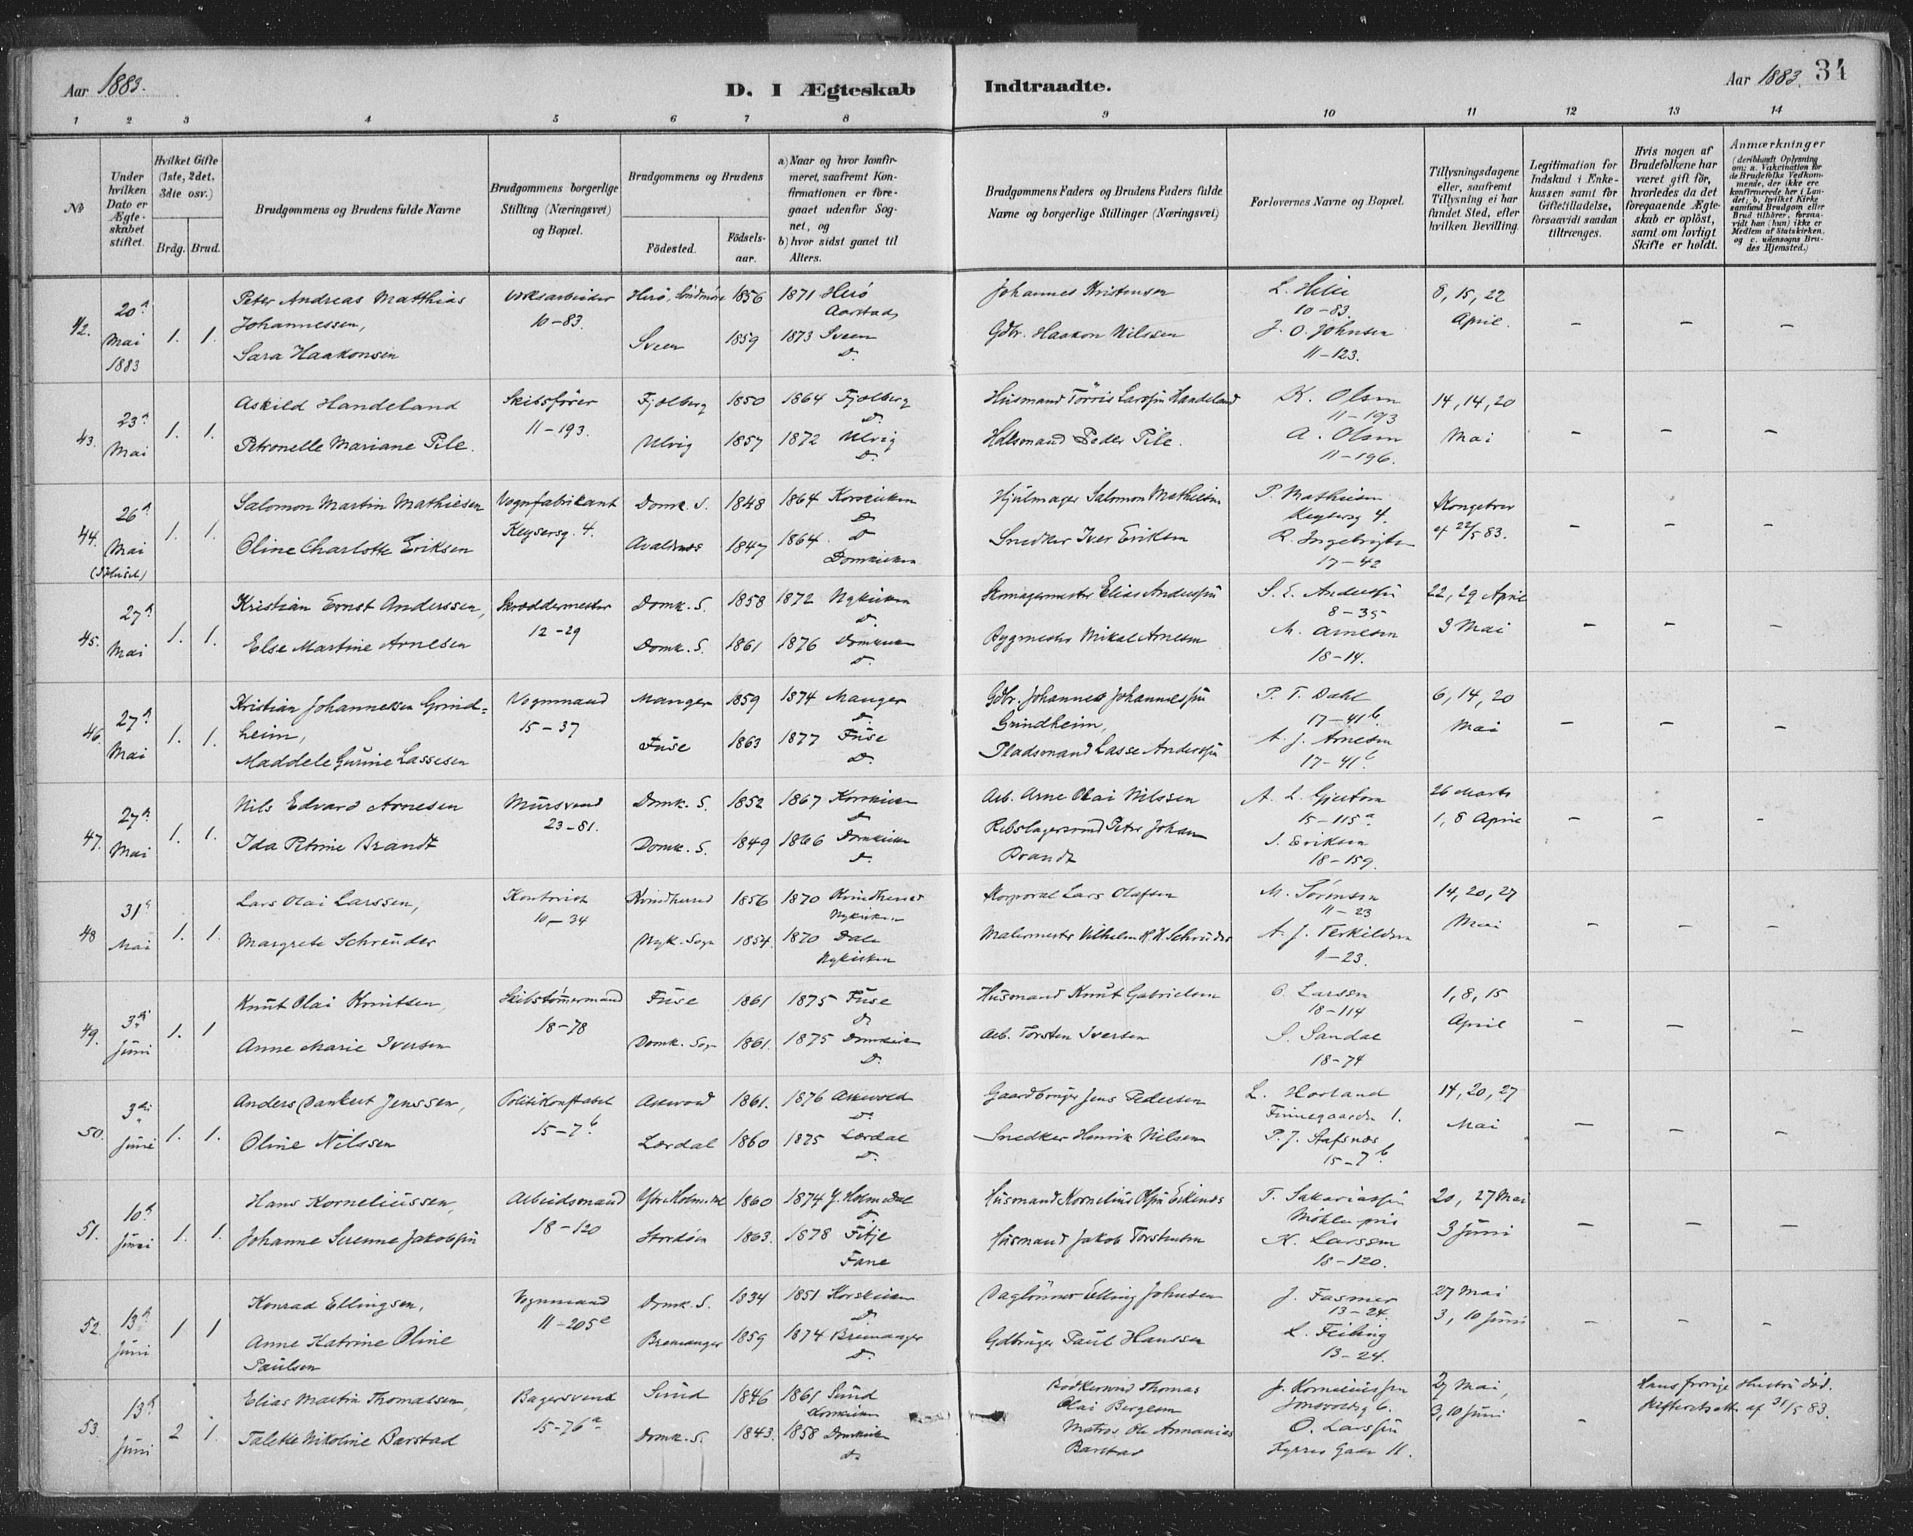 Aar 1883.
D. I Ægteskab
Indtraadte.
Aar 1883.
34
1 2 3 4 5 6 7 8 9 10 11 12 13 14
No
Under hvilken Dato er Ægteskabet stiftet.
Hvilket Gifte (1ste, 2det, 3die osv.)
Brdg. Brud.
Brudgommens og Brudens fulde Navne
Brudgommens borgerlige Stilling (Næringsvei) og Bopæl.
Brudgommens og Brudens
Födested. Födselsaar.
a) Naar og hvor konfirmeret, saafremt Konfirmationen er foregaaet udenfor Sognet, og
b) hvor sidst gaaet til Alters.
Brudgommens Faders og Brudens Faders fulde Navne og borgerlige Stillinger (Næringsvei)
Forlovernes Navne og Bopæl.
Tillysningsdagene eller, saafremt Tillysning ei har fundet Sted, efter hvilken Bevilling.
Legitimation for Indskud i Enkekassen samt for Giftetilladelse, forsaavidt saadan tiltrænges.
Hvis nogen af Brudefolkene har været gift för, hvorledes da det foregaaende Ægteskab er oplöst, samt om lovligt Skifte er holdt.
Anmærkninger
42. 20de Mai 1883 1. 1.
Peter Andreas Matthias Johannessen, Verksarbeider 10-83. Herö, Söndmöre 1856 1871 Herö Aarstad
Johannes Kristensen L. Hille 10-83. 8, 15, 22 April. - - -
Sara Haakonsen Sveen 1859 1873 Sveen do.
Gdbr. Haakon Nilssen J. O. Johnsen 11-123.
43. 23de Mai 1. 1.
Askild Handeland Skibsförer 11-193. Fjelberg 1850 1864 Fjelberg do
Husmand Törris Larssön Handeland K. Olsen 11-193 14, 14, 20 Mai - - -
Petronelle Mariane Pile. Ulvig 1857 1872 Ulvig do.
Husmand Peder Pile. A. Olsen 11-196.
44. 26de Mai 1. 1.
Salomon Martin Mathiesen Vognfabrikant Keysersg. 4. Domk. S. 1848 1864 Korskirken do
Hjulmager Salomon Mathiesen P. Mathiesen Keysersg 4. Kongebrev af 22/5 83. - - -
Oline Charlotte Eriksen Avaldsnes 1847 1864. do Domkirken
Snedker Iver Eriksen R. Ingebrigtsen 17-42
45. 27de Mai 1. 1.
Kristian Ernst Anderssen, Skræddermester 12-29 Domk. S. 1858 1872 Nykirken do.
Skomagermester Elias Anderssön S. E. Anderssön 8-35 22, 29 April 3 Mai - - -
Else Martine Arnesen Domk. S. 1861 1876 Domkirken do.
Bygmester Mikal Arnesen M. Arnesen 18-14.
46. 27de Mai 1. 1.
Kristian Johannessen Grindheim, Vognmand 15-37 Manger 1859 1874 Manger do.
Gdbr. Johannes Johannessön Grindheim, P. T. Dahl 17-41b. 6, 14, 20 Mai - - -
Maddele Gurine Lassesen Fuse 1863 1877 Fuse do.
Pladsmand Lasse Anderssön A. J. Arnesen 17-41b
47. 27de Mai 1. 1.
Nils Edvard Arnesen Mursvend 23-81. Domk. S. 1852 1867 Korskirken do
Arb. Arne Olai Nilssen A. L. 15-115a 26 Marts 1, 8 April - - -
Ida Petrine Brandt Domk. S. 1849 1866 Domkirken do.
Rebslagersvend Peter Johan Brandt J. Eriksen 18-159.
48 31te Mai 1. 1.
Lars Olai Larssen, Kontorist 10-34 Kvindherred 1856 1870 Kvindherred Nykirken
Korporal Lars Olafsen M. Sörensen 11-23 14, 20, 27 Mai - - -
Margrete Schreuder Nyk. Sogn 1854 1870 Dale Nykirken
Malermester Vilhelm Schreuder A. J. Terkildsen 11-23.
49. 3die Juni 1. 1
Knut Olai Knutsen, Skibstömmermand 18-78 Fuse 1861 1875 Fuse do
Husmand Knut Gabrielsen O. Larsen 18-114 1, 8, 15 April - - -
Anne Marie Iversen Domk. Sogn 1861. 1875 Domkirken do.
Arb. Torsten Iversen S. Sandal 18-74
50. 3die Juni 1. 1.
Anders Dankert Jenssen, Politikonstabel 15-7b. Askevold 1861. 1876 Askevold do.
Gaardbruger Jens Pedersen L. Hovland Finnegaarden 1. 14, 20, 27 Mai - - -
Oline Nilssen Lærdal 1860 1875 Lærdal do.
Snedker Henrik Nilsen P. J. Stafsnes 15-7b.
51. 10de Juni 1. 1.
Hans Korneliussen, Arbeidsmand 18-120 Ytre Holmedal 1860 1874 Y. Holmedal do
Husmand Kornelius T. Sakariassön Möhlenpris 20, 27 Mai 3 Juni - - -
Johanne Serenne Jakobssön Stordöen 1863. 1878 Fitje Fane
Husmand Jakob Torstensen K. Larssen 18-120.
52. 13de Juni 1 1
Konrad Ellingsen, Vognmand 11-205c Domk. S. 1834 1851 Korskirken do
Daglönner Elling Johnsen J. Fasmer 13-24. 27 Mai 3, 10 Juni - - -
Anne Katrine Oline Paulsen Bremanger 1859 1874 Bremanger do.
Gdbruger Paul Hanssen L. Feiling 13-24.
53. 13de Juni 2 1.
Elias Martin Thomassen, Bagersvend 15-76a Sund 1846 1861 Sund Domkirken
Bödkersvend Thomas Olai Bergesen J. Korneliussen Jonsvoldsg 6. 27 Mai, 3, 10 Juni - Hans forrige Hustru död. Skifteretsatt. af 31/5 83.
Talette Nikoline Barstad Domk. S. 1843. 1858 Domkirken do
Matros Ole Annanias Barstad O. Larssön Hyrres Gade 11.